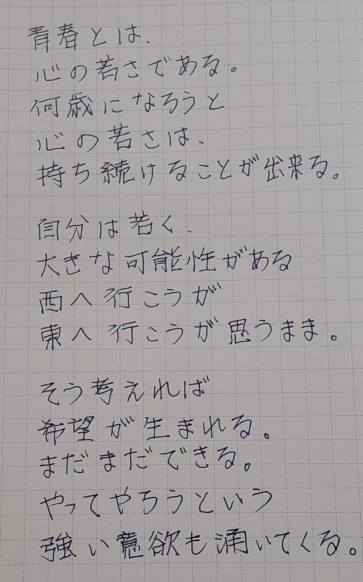 青春とは、
心の若さである。
何歳になろうと
心の若さは、
持ち続けることが出来る。
自分は若く、
大きな可能性がある
西へ行こうが
東へ行こうが思うまま。
そう考えれば
希望が生まれる。
まだまだできる。
やってやろうという
強い意欲も湧いてくる。